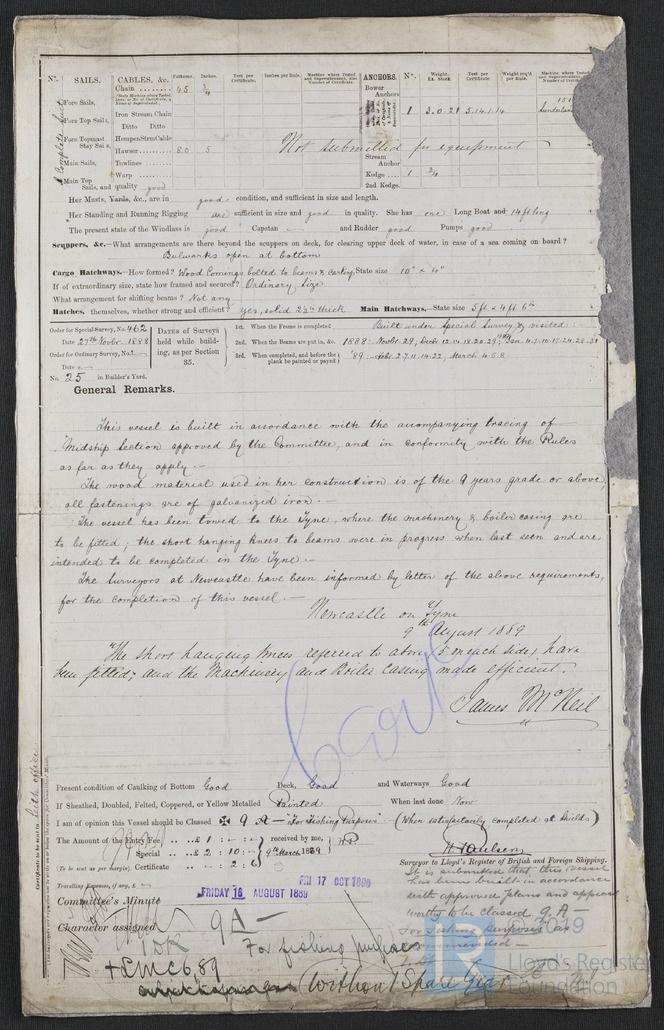 Nº. SAILS. CABLES, &c. Fathoms. Inches. Test per Certificate. Inches per Rule. Machine where Tested and Superintendent, also Number of Certificate. ANCHORS. Nº. Weight. Ex. Stock Test per Certificate Weight req'd per Rule. Machine where Tested
Chain 45 3/4 Bower Anchors
Fore Sails, 1 3.0.21 5.14.1.14 Sunderland
Iron Stream Chain
Fore Top Sails, Ditto Ditto
Fore Topmast Stay Sails, Hempen Strm Cable
Hawser 80 5 Not submitted for equipment
Main Sails, Towlines Stream Anchor
Main Top Sails, and quality good Warp Kedge 1 3/4
2nd Kedge.
Complete Suit
Her Masts, Yards, &c., are in good condition, and sufficient in size and length.
Her Standing and Running Rigging are sufficient in size and good in quality. She has one Long Boat and 14 ft long
The present state of the Windlass is good Capstan - and Rudder good Pumps good
Scuppers, &c.—What arrangements are there beyond the scuppers on deck, for clearing upper deck of water, in case of a sea coming on board?
Bulwarks open at bottom
Cargo Hatchways.—How formed? Wood Comings bolted to beams & carling State size 10" x 4"
If of extraordinary size, state how framed and secured? Ordinary Size
What arrangement for shifting beams? Not any
Hatches, themselves, whether strong and efficient? yes, solid 2½ thick Main Hatchways.—State size 5ft x 4ft 6in
Order for Special Survey, No. 462
Date 27th Novbr 1888
Order for Ordinary Survey, No.
Date
No. 25 in Builder's Yard.
DATES of Surveys held while building, as per Section 35.
1st. When the Frame is completed Built under Special Survey & visited
2nd. When the Beams are put in, &c. 1888. Novbr. 29, Decbr 12.14.18.20.29; 1889 Jan. 4.7.10.17.24.28.31
3rd. When completed, and before the plank be painted or payed '89. Febr. 2.7.11.14.22, March 4.5.8
General Remarks.
This vessel is built in accordance with the accompanying tracing of
Midship Section approved by the Committee, and in conformity with the Rules
as far as they apply.—
The wood material used in her construction is of the 9 years grade or above,
all fastenings are of galvanized iron.—
The vessel has been towed to the Tyne, where the machinery & boiler casing are
to be fitted, the short hanging knees to beams were in progress when last seen and are
intended to be completed in the Tyne.—
The Surveyors at Newcastle have been informed by letter of the above requirements,
for the completion of this vessel.—
Newcastle on Tyne
9th August 1889
"The short hanging knees referred to above (5 in each side) have
been fitted; and the Machinery and Boiler Casing made efficient.
James McNeil
Present condition of Caulking of Bottom Good Deck, Good and Waterways Good
If Sheathed, Doubled, Felted, Coppered, or Yellow Metalled Painted When last done Now
I am of opinion this Vessel should be Classed ✠ 9 A — "For Fishing Purposes" (When satisfactorily completed at Shields)
The Amount of the Entry Fee .. .. £ 1 : - : - received by me,
Special .. .. £ 2 : 10 : - 9th March 1889
(To be sent as per margin.) Certificate .. : 2 : 6
Surveyor to Lloyd's Register of British and Foreign Shipping.
Travelling Expenses, if any, £
Committee's Minute
FRIDAY 16 AUGUST 1889
FRI 17 OCT 1890
Character assigned 9A —
For fishing purposes
+LMC 6,89
(Without Spare Gear
It is submitted that this vessel
has been built in accordance
with approved plans and appears
worthy to be classed 9. A.
For Fishing purposes as
recommended —
Certificate to be sent to Leith office
© 2019
Lloyd's Register
Foundation